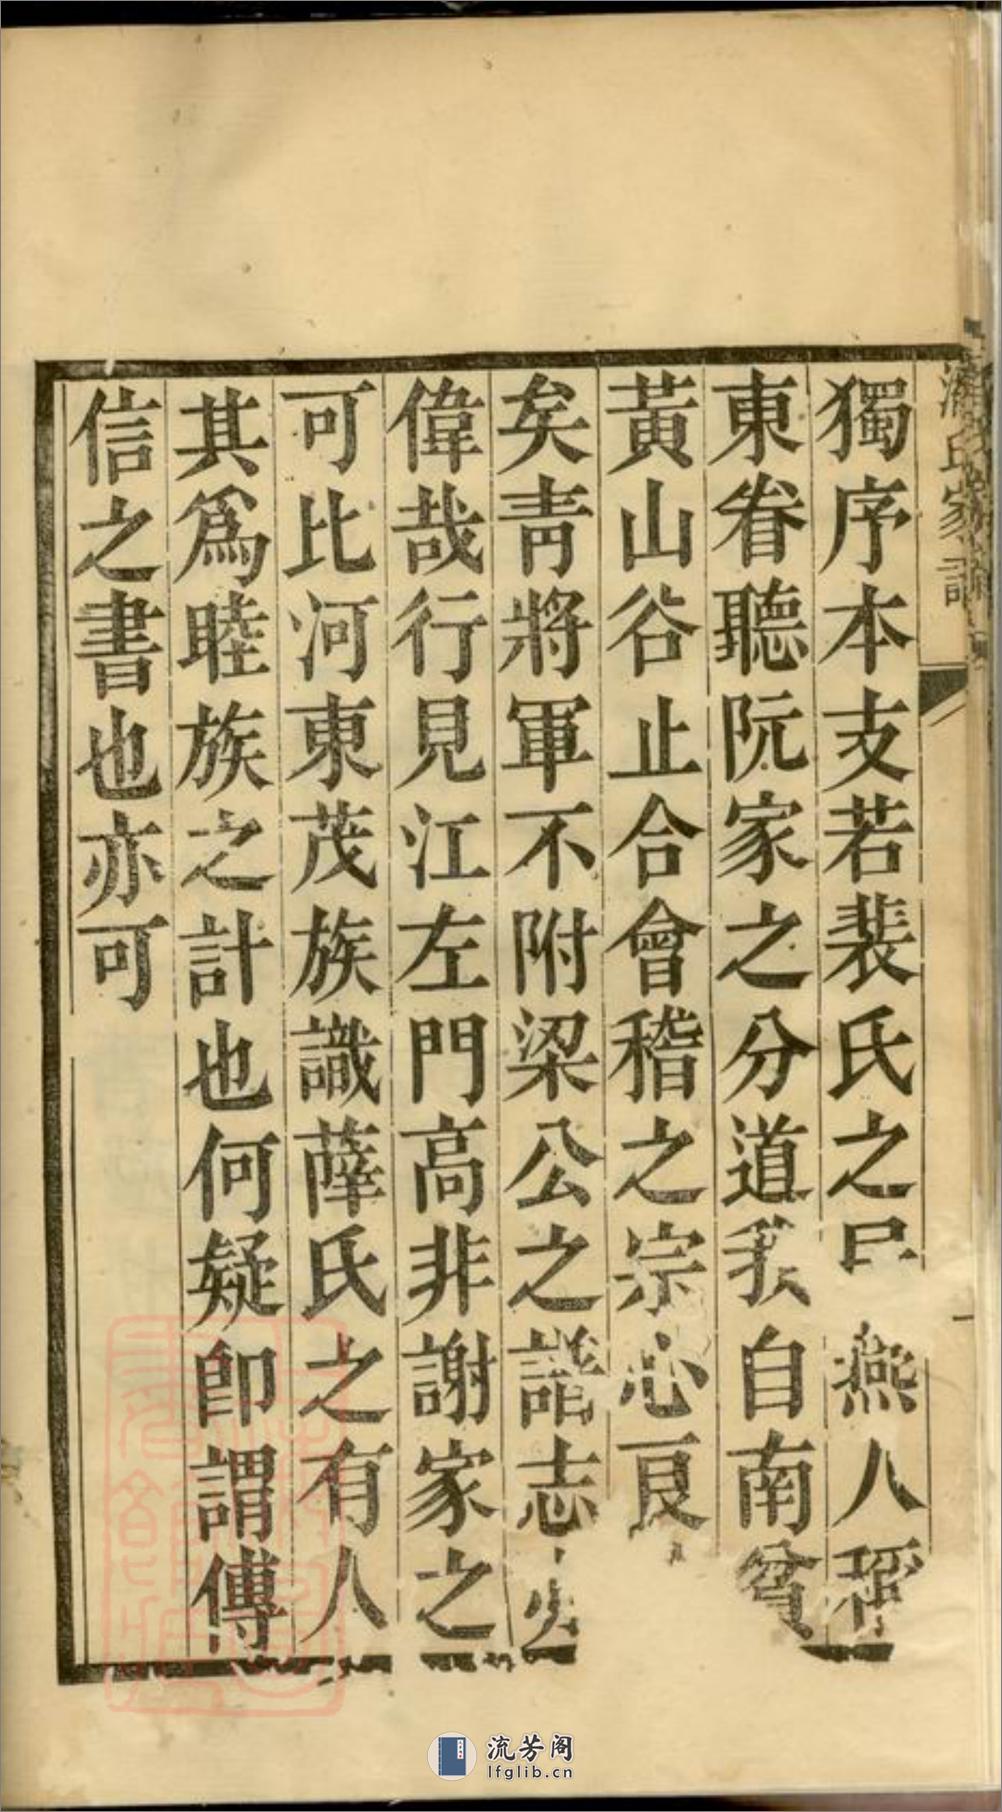 獨序本支若裴氏之 燕人稱
東眷聽阮家之分道我自南貧
黃山谷止合會稽之宗心良
矣靑將軍不附梁公之譜志
偉哉行見江左門高非謝家之
可比河東茂族識薛氏之有人
其爲睦族之計也何疑卽謂傳
信之書也亦可
氏家譜
流芳阁
lfglib.cn